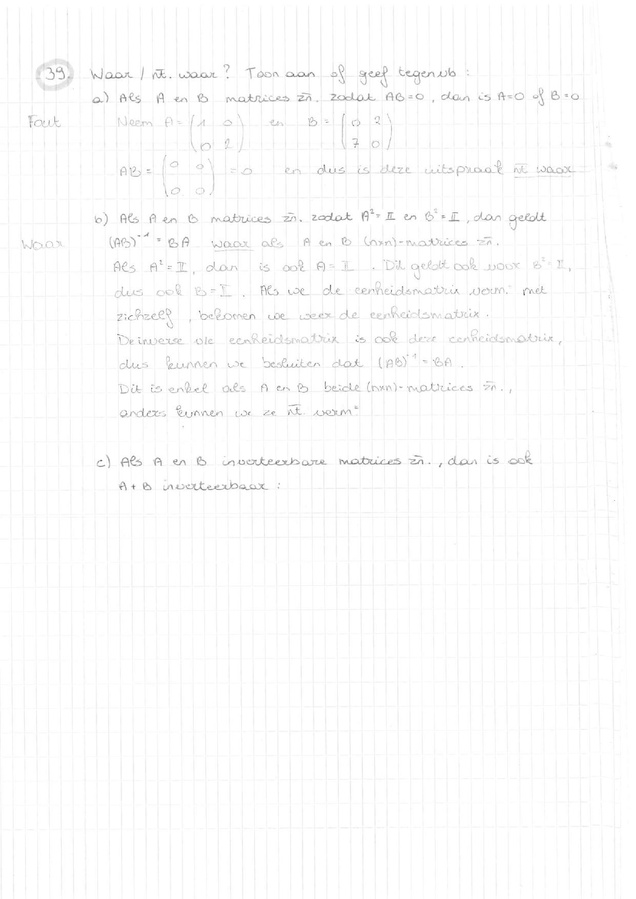 39. Waar / nt. waar? Toon aan of geef tegenvb:
a) Als A en B matrices zn. zodat AB=0, dan is A=0 of B=0
Fout Neem A = (1 0 en B = (0 2
0 2) 7 0)
AB = (0 0 = 0 en dus is deze uitspraak nt waar
0 0)
b) Als A en B matrices zn. zodat A² = I en B² = I, dan geldt
Waar (AB)⁻¹ = BA waar als A en B (n×n)-matrices zn.
Als A² = I, dan is ook A = I. Dit geldt ook voor B² = I,
dus ook B = I. Als we de eenheidsmatrix verm. met
zichzelf, bekomen we weer de eenheidsmatrix.
De inverse v/e eenheidsmatrix is ook deze eenheidsmatrix,
dus kunnen we besluiten dat (AB)⁻¹ = BA.
Dit is enkel als A en B beide (n×n)-matrices zn.,
anders kunnen we ze nt verm.
c) Als A en B inverteerbare matrices zn., dan is ook
A + B inverteerbaar: